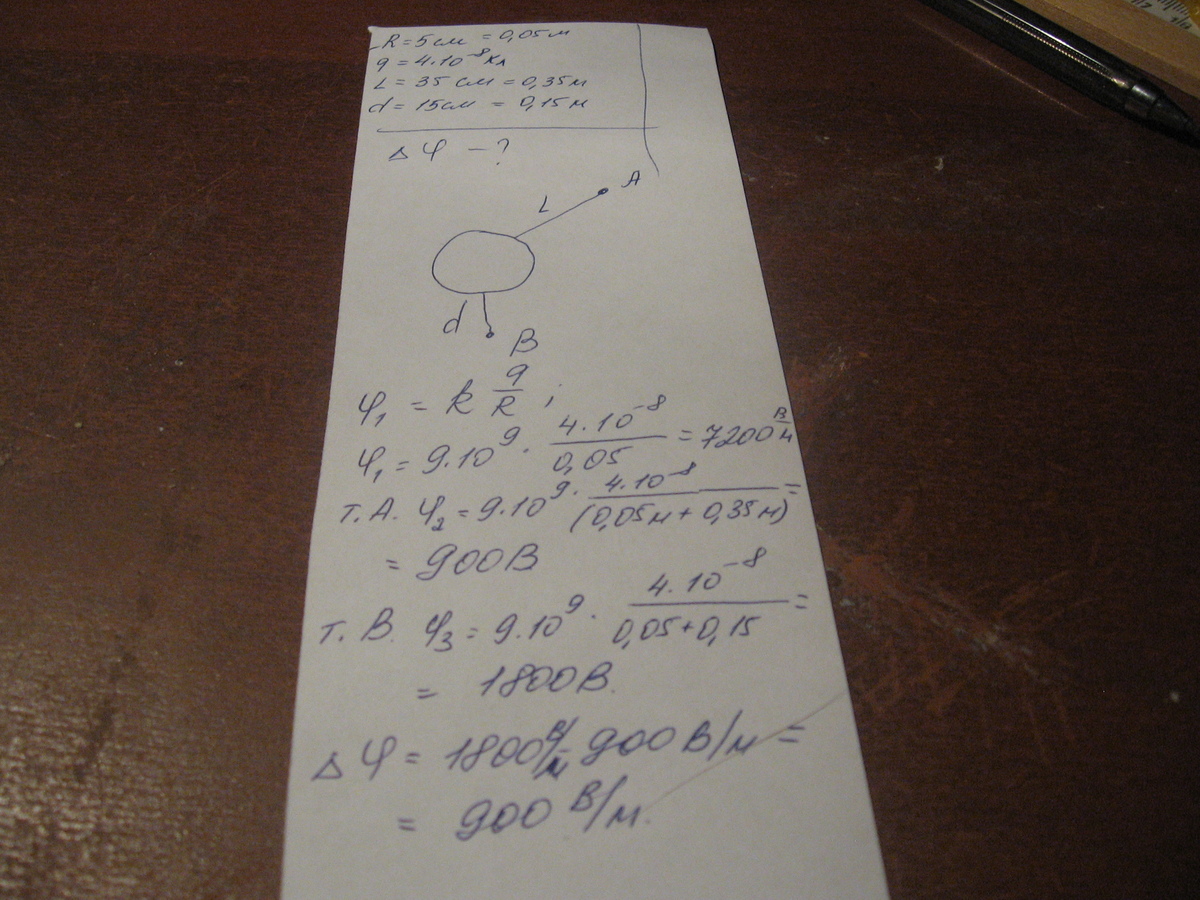 R = 5 см = 0,05 м
q = 4·10⁻⁸ Кл
L = 35 см = 0,35 м
d = 15 см = 0,15 м
Δφ – ?
A
L
d
B
φ₁ = k q/R ;
φ₁ = 9·10⁹ · 4·10⁻⁸/0,05 = 7200 В/м
т. А. φ₂ = 9·10⁹ · 4·10⁻⁸/(0,05м + 0,35м) =
= 900 В
т. В. φ₃ = 9·10⁹ · 4·10⁻⁸/0,05+0,15 =
= 1800 В.
Δφ = 1800 В/м – 900 В/м =
= 900 В/м.